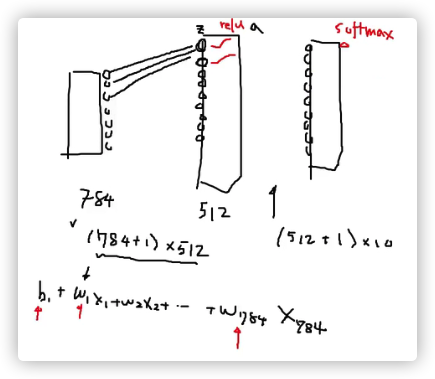 z relu a softmax
784 512
(784+1)×512 (512+1)×10
b₁ + w₁x₁+w₂x₂+ ··· +w₇₈₄ x₇₈₄